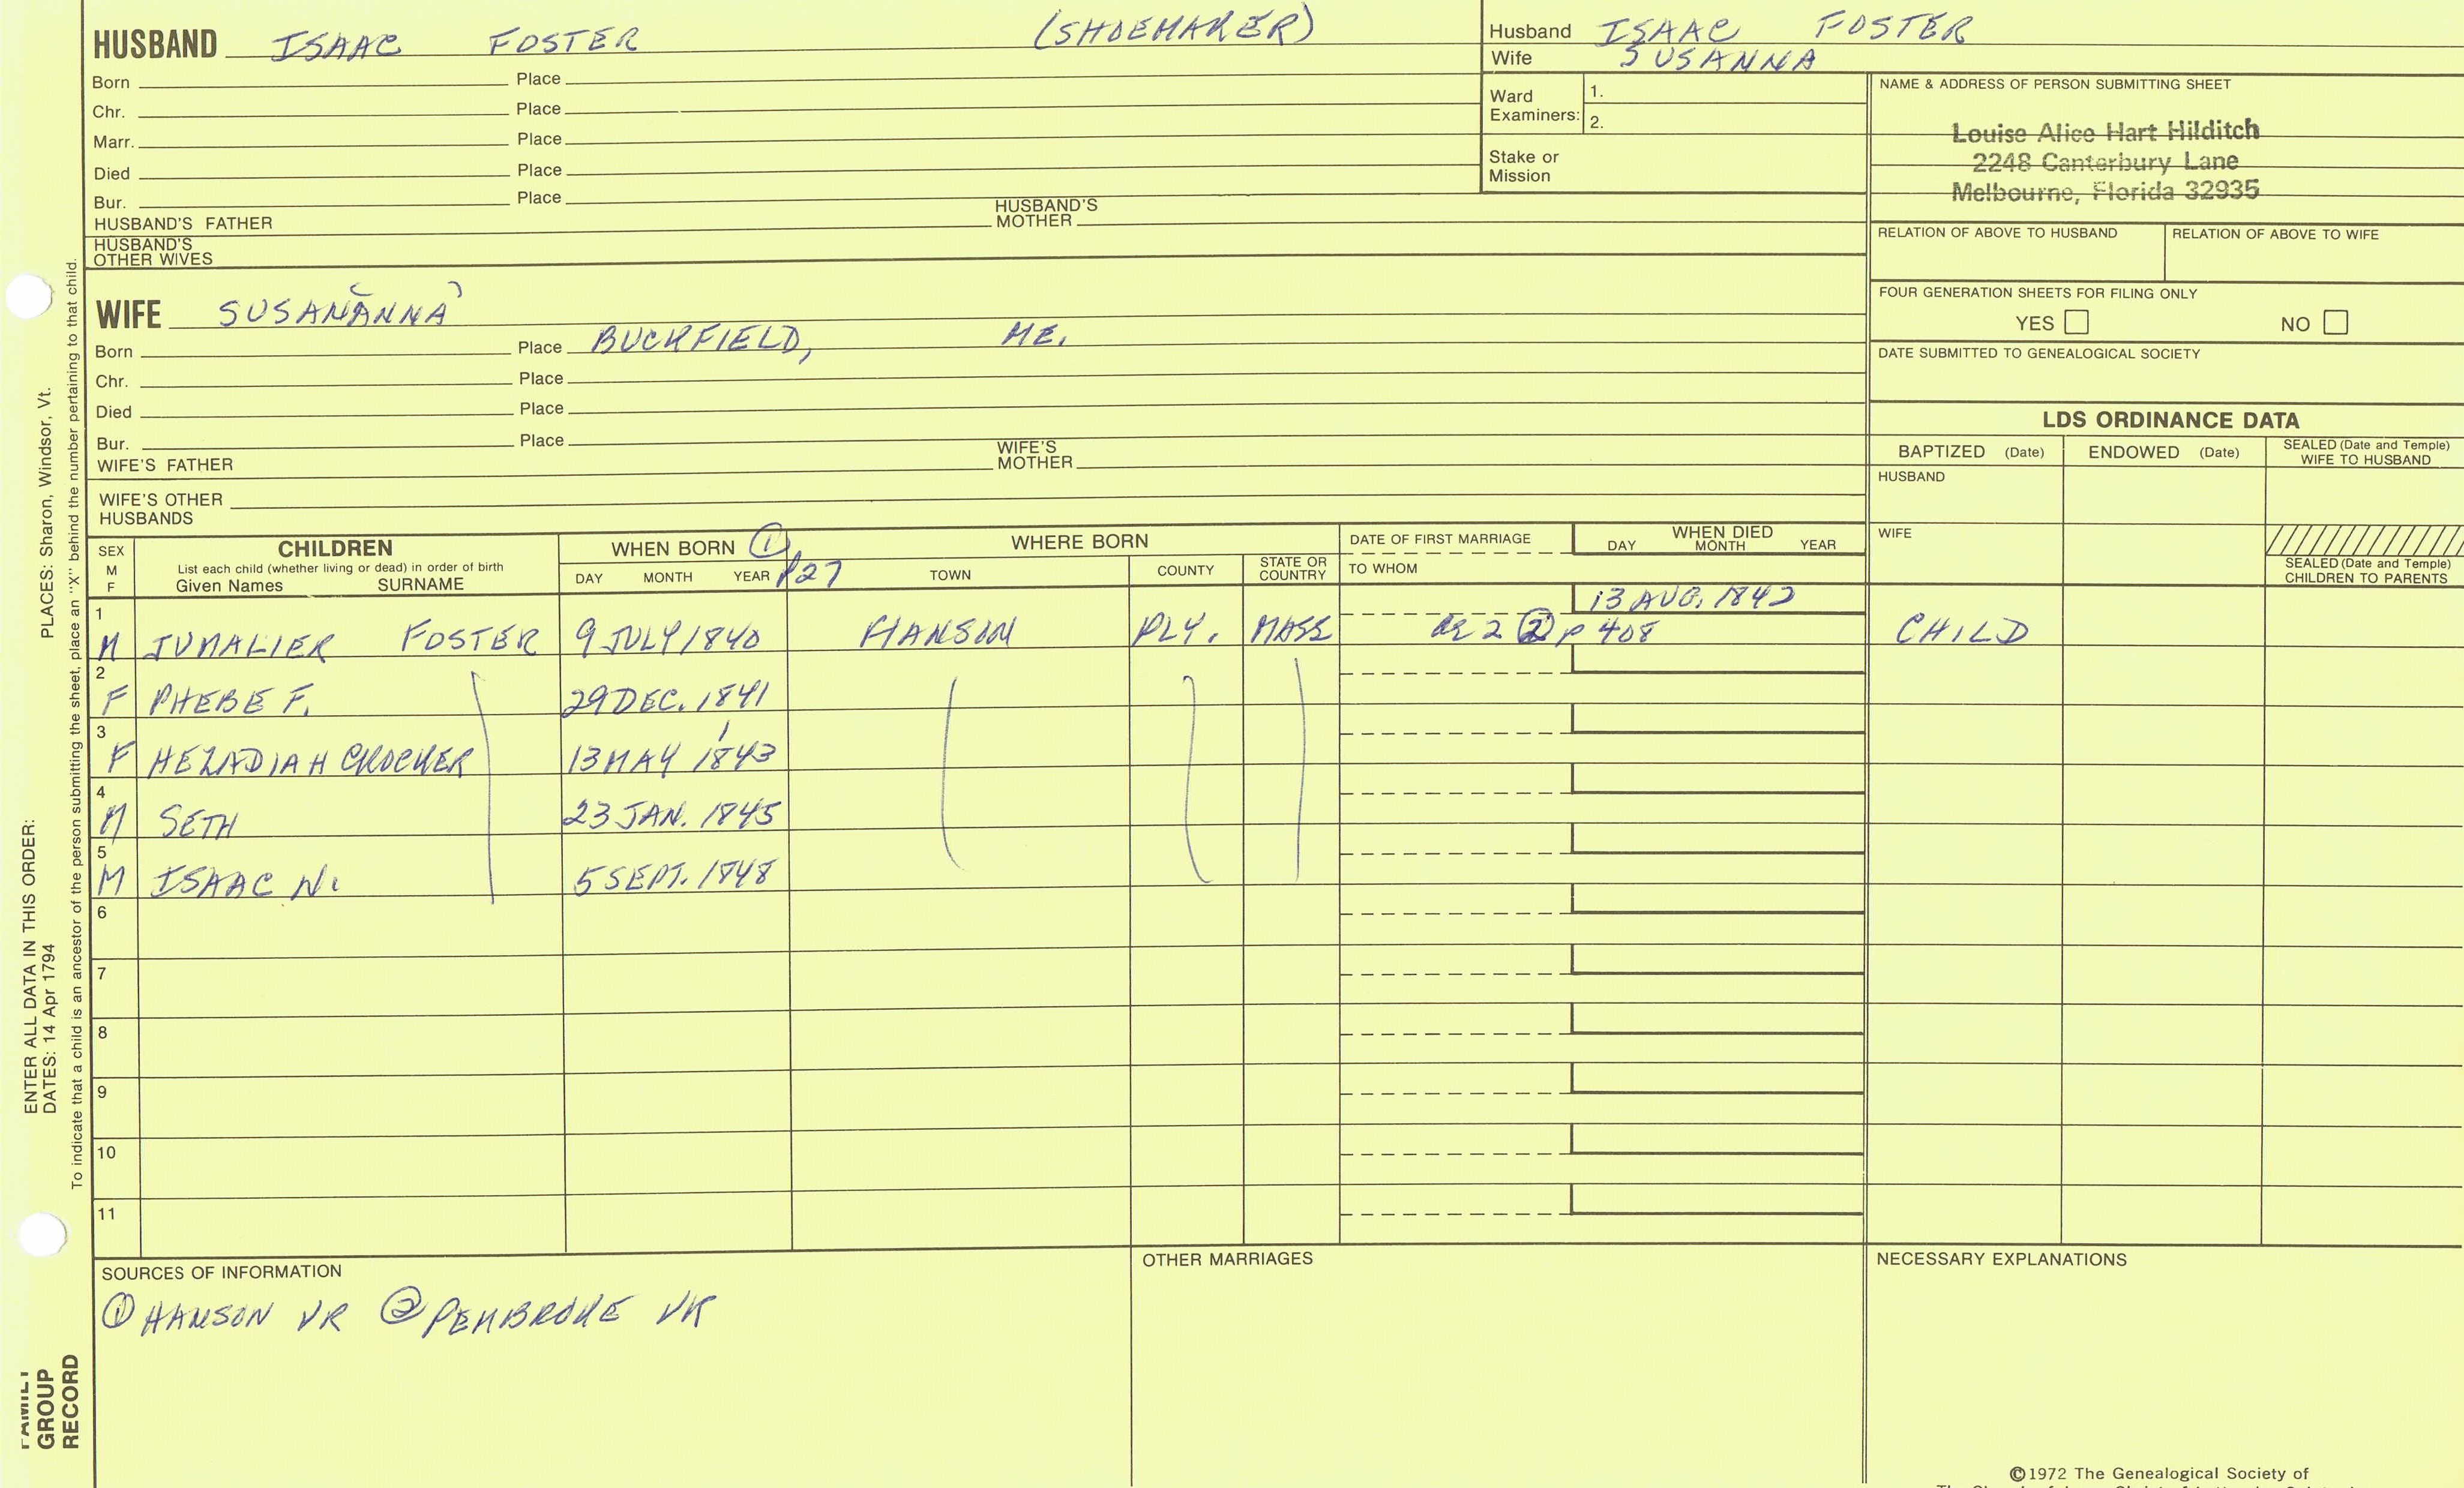 HUSBAND ISAAC FOSTER (SHOEMAKER)
Born Place
Chr. Place
Marr. Place
Died Place
Bur. Place
HUSBAND'S FATHER HUSBAND'S MOTHER
HUSBAND'S OTHER WIVES
Husband ISAAC FOSTER
Wife SUSANNA
Ward Examiners: 1.
2.
Stake or Mission
NAME & ADDRESS OF PERSON SUBMITTING SHEET
Louise Alice Hart Hilditch
2248 Canterbury Lane
Melbourne, Florida 32935
RELATION OF ABOVE TO HUSBAND RELATION OF ABOVE TO WIFE
FOUR GENERATION SHEETS FOR FILING ONLY
YES NO
DATE SUBMITTED TO GENEALOGICAL SOCIETY
WIFE SUSANANNA
Born Place BUCKFIELD, ME.
Chr. Place
Died Place
Bur. Place
WIFE'S FATHER WIFE'S MOTHER
WIFE'S OTHER HUSBANDS
LDS ORDINANCE DATA
BAPTIZED (Date) ENDOWED (Date) SEALED (Date and Temple) WIFE TO HUSBAND
HUSBAND
WIFE
SEALED (Date and Temple) CHILDREN TO PARENTS
SEX M F
CHILDREN
List each child (whether living or dead) in order of birth
Given Names SURNAME
WHEN BORN ①
DAY MONTH YEAR P27
WHERE BORN
TOWN COUNTY STATE OR COUNTRY
DATE OF FIRST MARRIAGE
TO WHOM
WHEN DIED
DAY MONTH YEAR
13 AUG. 1842
1 M FOSTER 9 JULY 1840 HANSON PLY. MASS 2 ② P 408 CHILD
2 F PHEBE F. 29 DEC. 1841
3 F HEZADIAH CROCKER 13 MAY 1843
4 M SETH 23 JAN. 1845
5 M ISAAC N. 5 SEPT. 1848
6
7
8
9
10
11
SOURCES OF INFORMATION
① HANSON VR ② PEMBROKE VR
OTHER MARRIAGES
NECESSARY EXPLANATIONS
©1972 The Genealogical Society of
PLACES: Sharon, Windsor, Vt.
To indicate that a child is an ancestor of the person submitting the sheet, place an "X" behind the number pertaining to that child.
ENTER ALL DATA IN THIS ORDER:
DATES: 14 Apr 1794
FAMILY
GROUP
RECORD